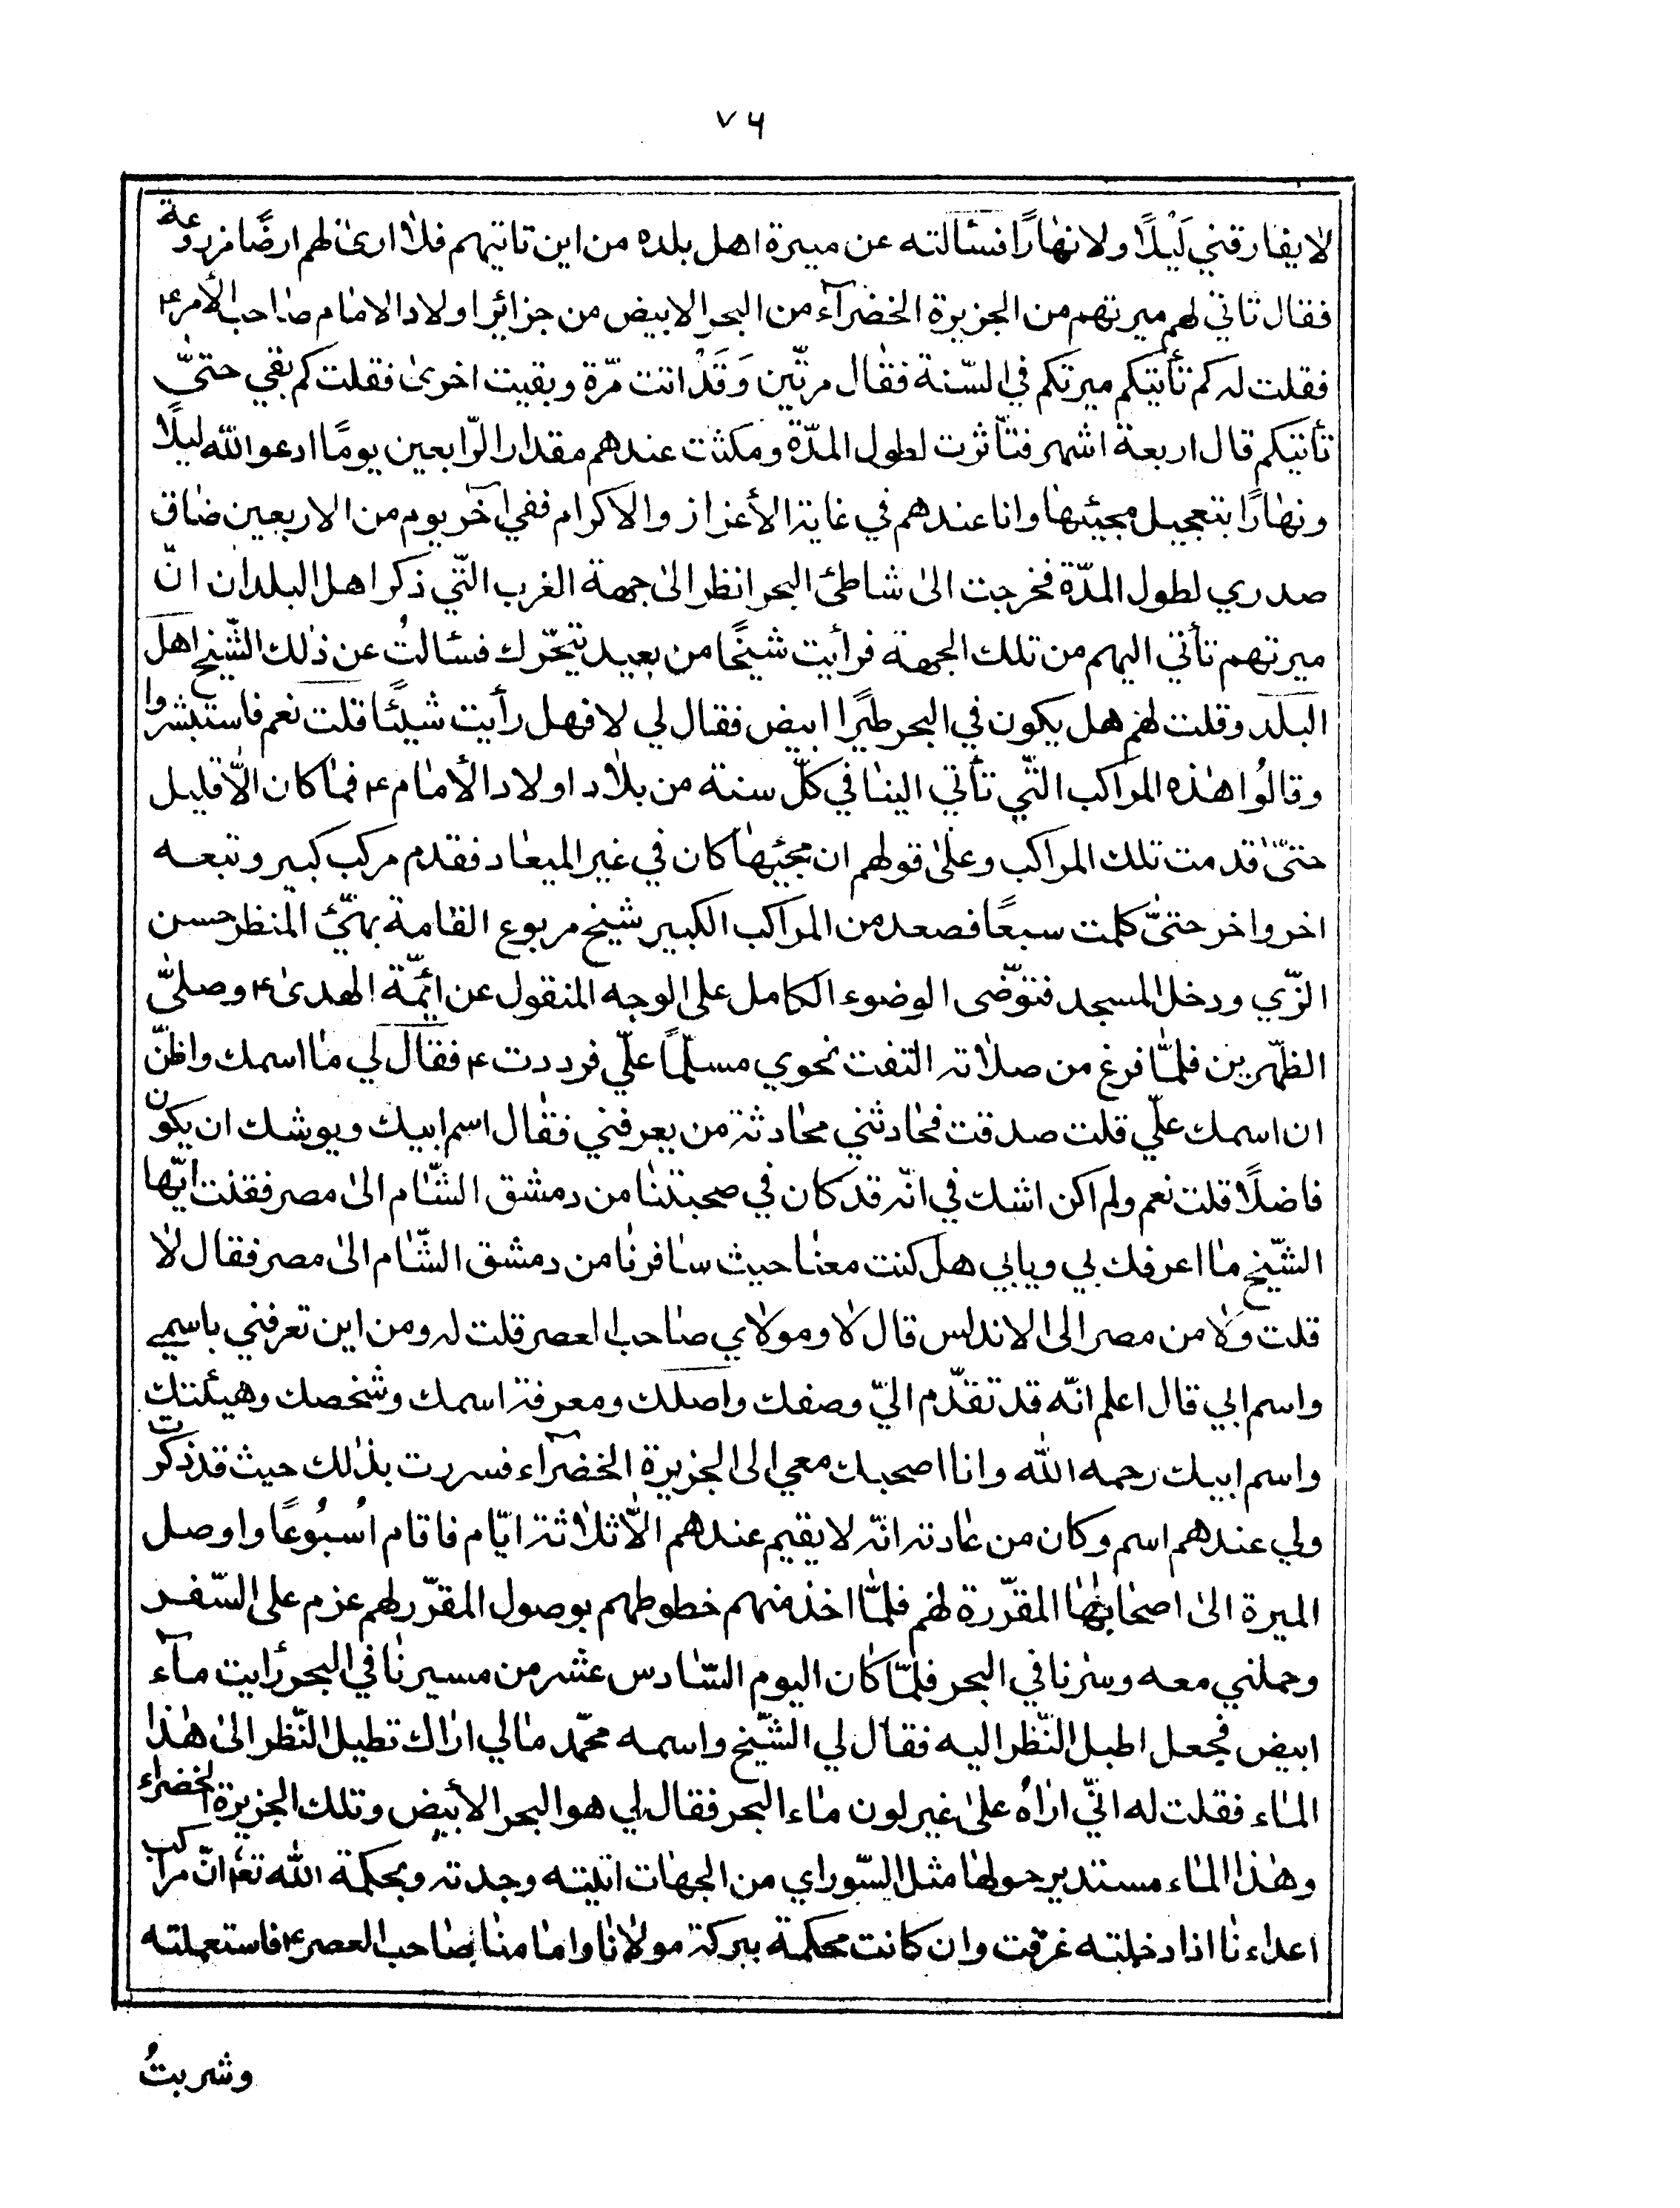 ٧٦
لا يفارقني لَيْلًا ولا نهارًا فسئالته عن ميرة اهل بلده من اين تاتيهم فلا ارى لهم ارضًا مزروعة
فقال تاتي لهم ميرتهم من الجزيرة الخضرآء من البحر الابيض من جزائر اولاد الامام صاحب الأمر ع
فقلت له كم تأتيكم ميرتكم في السّنة فقال مرتّين وَقَدْ اتت مّرة وبقيت اخرى فقلت كم بقي حتىّ
تأتيكم قال اربعة اشهر فتأثرت لطول المدّة ومكثت عندهم مقدار الرّابعين يومًا ادعو الله ليلًا
ونهارًا بتعجيل مجيئها وانا عندهم في غاية الأعزاز والاكرام ففي آخر يوم من الاربعين ضاق
صدري لطول المدّة فخرجت الى شاطئ البحر انظر الى جهة الغرب التّي ذكر اهل البلدان انّ
ميرتهم تأتي اليهم من تلك الجهة فرأيت شبحًا من بعيد يتحّرك فسئالتُ عن ذلك الشّبح اهل
البلد وقلت لهم هل يكون في البحر طيرًا ابيض فقال لي لا فهل رأيت شيئًا قلت نعم فاستبشروا
وقالُوا هذه المراكب التّي تأتي الينا في كلّ سنة من بلاد اولاد الأمام ع فما كان الّا قليل
حتىّ قدمت تلك المراكب وعلى قولهم ان مجيئها كان في غير الميعاد فقدم مركب كبير وتبعه
اخر واخر حتىّ كلمت سبعًا فصعد من المراكب الكبير شيخ مربوع القامة بهيّ المنظر حسن
الزّي ودخل المسجد فتوّضى الوضوء الكامل على الوجه المنقول عن ائمّة الهدى ع وصلىّ
الظّهرين فلمّا فرغ من صلاته التفت نحوي مسلّمًا علّي فرددت ع فقال لي ما اسمك واظنّ
ان اسمك علّي قلت صدقت فحادثني محادثة من يعرفني فقال اسم ابيك ويوشك ان يكون
فاضلًا قلت نعم ولم اكن اشك في انّه قد كان في صحبتنا من دمشق الشّام الى مصر فقلت ايّها
الشّيخ ما اعرفك بي وبابي هل كنت معنا حيث سافرنا من دمشق الشّام الى مصر فقال لا
قلت وَلا من مصر الى الاندلس قال لا ومولاي صاحب العصر قلت له ومن اين تعرفني باسمي
واسم ابي قال اعلم انّه قد تقدّم اليّ وصفك واصلك ومعرفة اسمك وشخصك وهيئتك
واسم ابيك رحمه الله وانا اصحبك معي الى الجزيرة الخضرآء فسررت بذلك حيث قد ذكرت
ولي عندهم اسم وكان من عادته انّه لا يقيم عندهم الّا ثلاثة ايّام فاقام اُسبُوعًا واوصل
الميرة الى اصحابها المقرّرة لهم فلمّا اخذ منهم خطوطهم بوصول المقرّر لهم عزم على السّفر
وحملني معه وسرنا في البحر فلمّا كان اليوم السّادس عشر من مسيرنا في البحر رأيت مآء
ابيض فجعل اطيل النّظر اليه فقال لي الشّيخ واسمه محمّد ما لي اراك تطيل النّظر الى هذا
الماء فقلت له انّي اراهُ على غير لون ماء البحر فقال لي هو البحر الأبيض وتلك الجزيرة الخضراء
وهذا الماء مستدير حولها مثل السّور اي من الجهات اتيته وجدته وبحكمة الله تع انّ مراكب
اعداءنا اذا دخلته غرقت وان كانت محكمة ببركة مولانا وامامنا صاحب العصر ع فاستعملته
وشربتُ